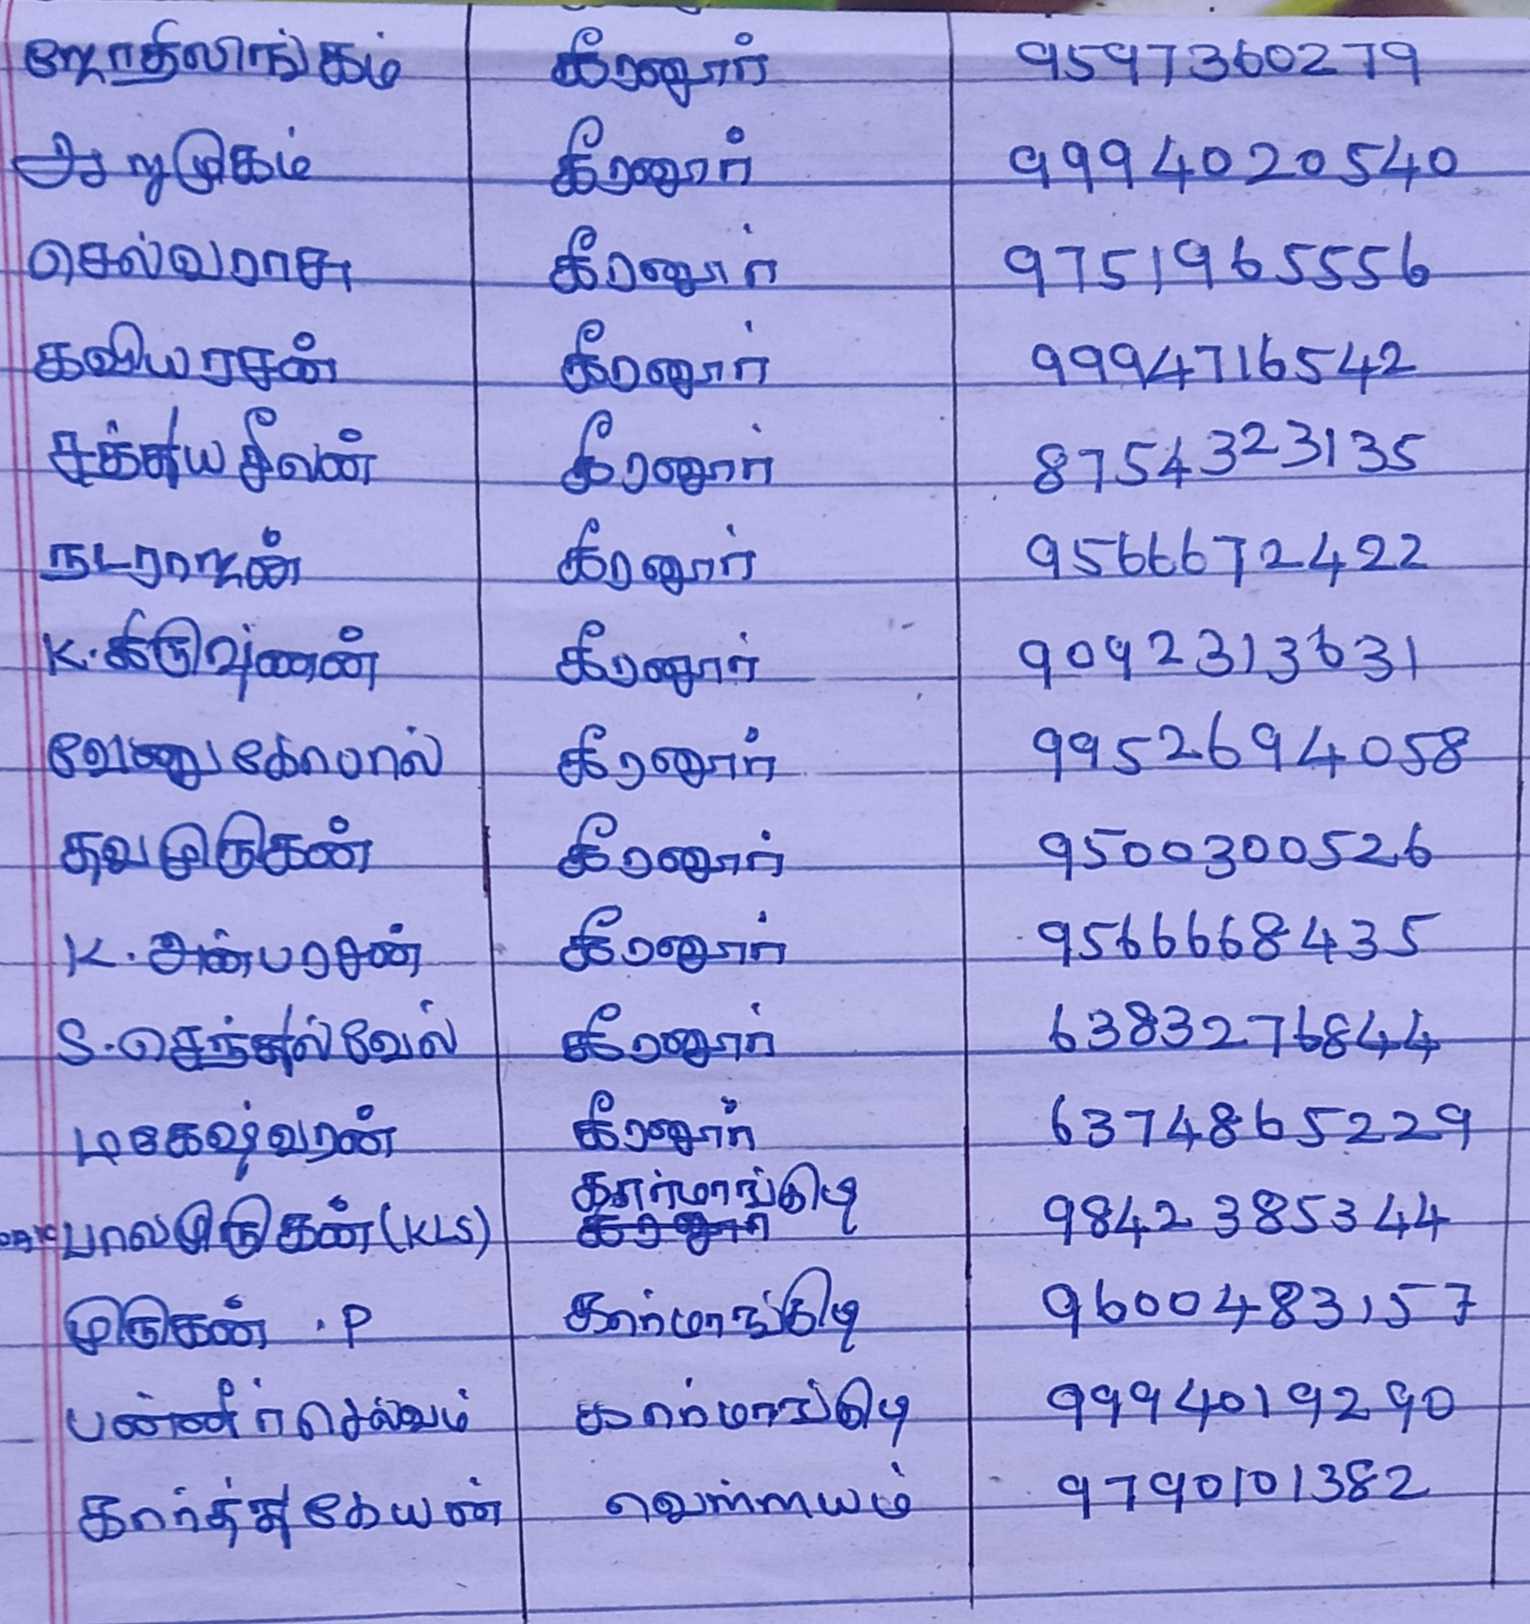 ஜோதிலிங்கம் கீரனூர் 9597360279
ஆறுமுகம் கீரனூர் 9994020540
செல்வராசு கீரனூர் 9751965556
கவியரசன் கீரனூர் 9994716542
சத்தியசீலன் கீரனூர் 8754323135
நடராஜன் கீரனூர் 9566672422
K. கிருஷ்ணன் கீரனூர் 9092313631
வேணுகோபால் கீரனூர் 9952694058
தவமுருகன் கீரனூர் 9500300526
K. அன்பரசன் கீரனூர் 9566668435
S. செந்தில்வேல் கீரனூர் 6383276844
மகேஷ்வரன் கீரனூர் 6374865229
பாலமுருகன் (KLS) கார்மாங்குடி 9842385344
முருகன் . P கார்மாங்குடி 9600483157
பன்னீர்செல்வம் கார்மாங்குடி 9994019290
கார்த்திகேயன் 9790101382